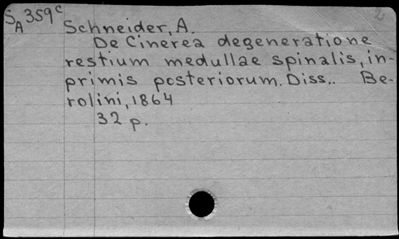 SA 359c Schneider, A.
De Cinerea degeneratione
restium medullae spinalis, in-
primis posteriorum. Diss.. Be-
rolini, 1864
32 p.